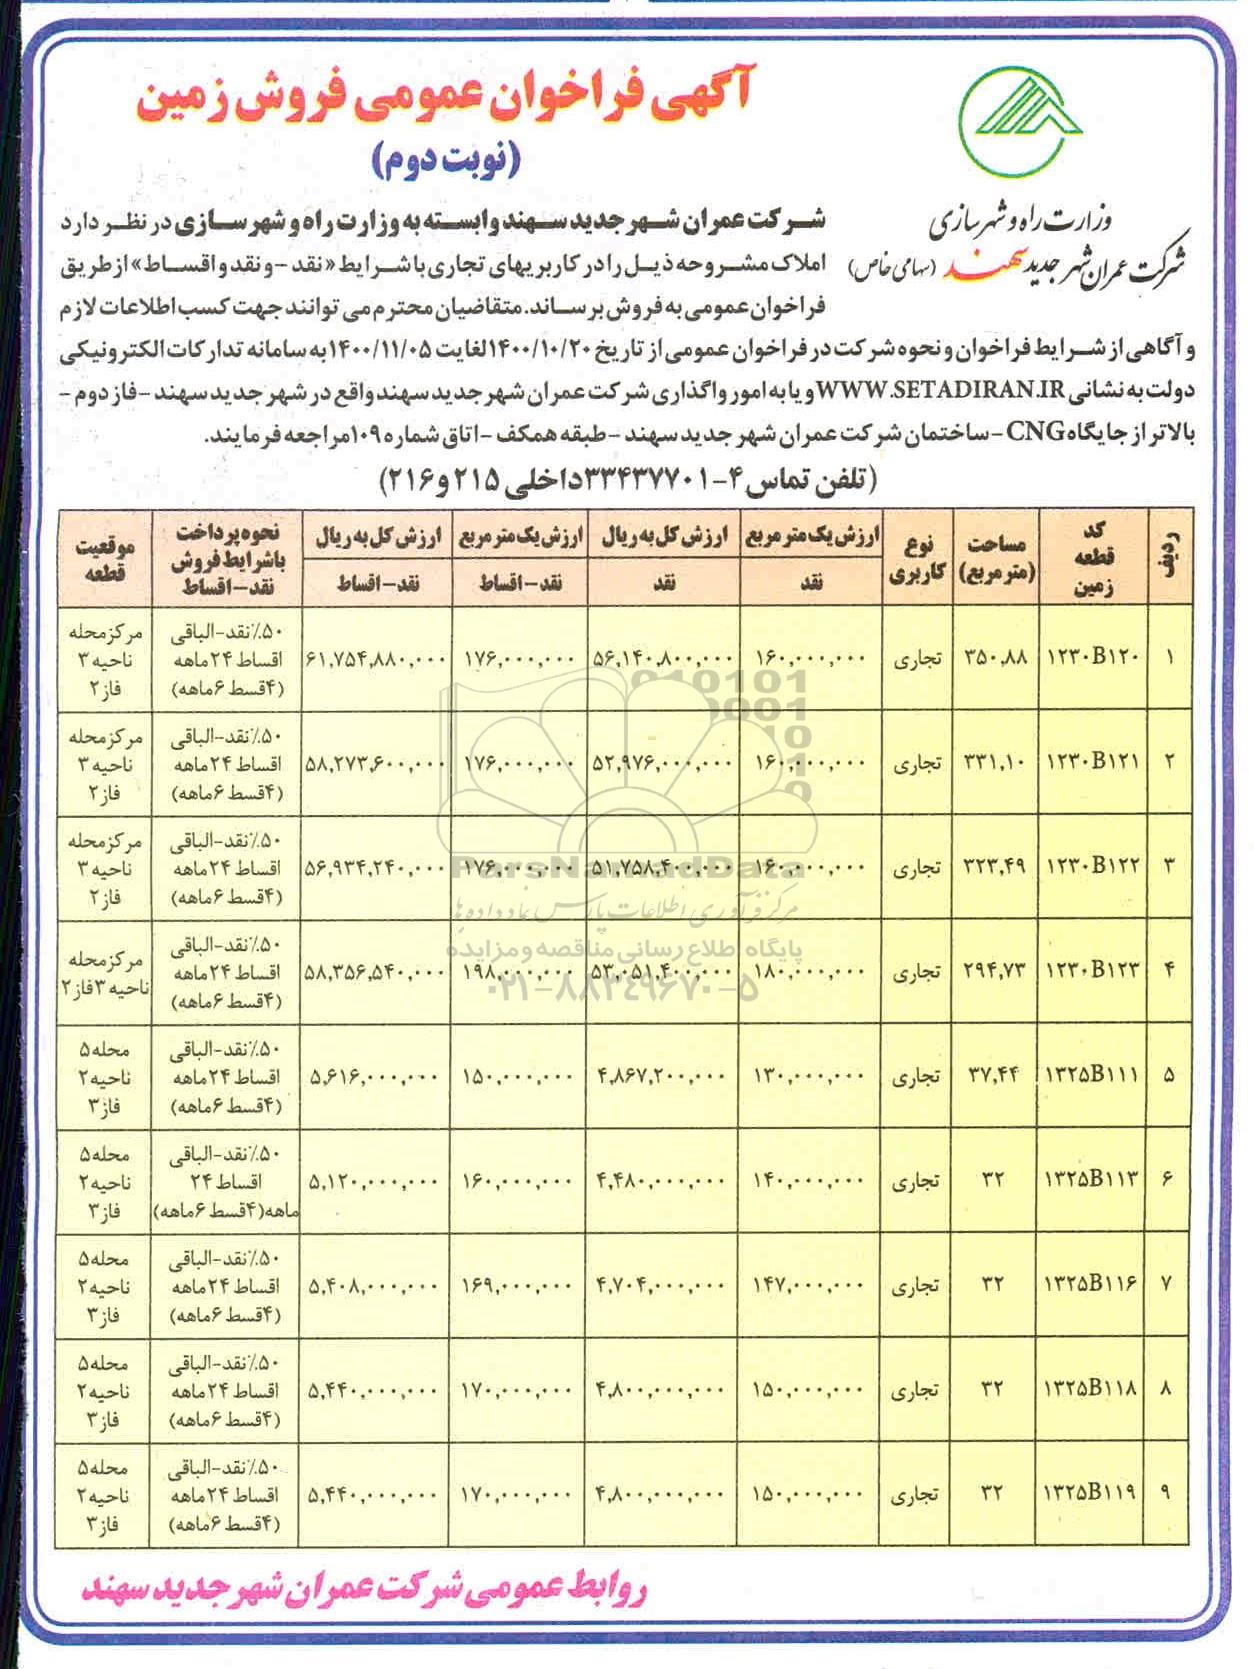 آگهی فراخوان عمومی فروش زمین
(نوبت دوم)
وزارت راه و شهرسازی
شرکت عمران شهر جدید سهند (سهامی خاص)
شرکت عمران شهر جدید سهند وابسته به وزارت راه و شهرسازی در نظر دارد
املاک مشروحه ذیل را در کاربریهای تجاری با شرایط «نقد - و نقد و اقساط» از طریق
فراخوان عمومی به فروش برساند. متقاضیان محترم می توانند جهت کسب اطلاعات لازم
و آگاهی از شرایط فراخوان و نحوه شرکت در فراخوان عمومی از تاریخ ۱۴۰۰/۱۰/۲۰ لغایت ۱۴۰۰/۱۱/۰۵ به سامانه تدارکات الکترونیکی
دولت به نشانی WWW.SETADIRAN.IR و یا به امور واگذاری شرکت عمران شهر جدید سهند واقع در شهر جدید سهند - فاز دوم -
بالاتر از جایگاه CNG - ساختمان شرکت عمران شهر جدید سهند - طبقه همکف - اتاق شماره ۱۰۹ مراجعه فرمایند.
(تلفن تماس ۴-۳۳۴۳۷۷۰۱ داخلی ۲۱۵ و ۲۱۶)
ردیف | کد قطعه زمین | مساحت (متر مربع) | نوع کاربری | ارزش یک متر مربع نقد | ارزش کل به ریال نقد | ارزش یک متر مربع نقد-اقساط | ارزش کل به ریال نقد-اقساط | نحوه پرداخت با شرایط فروش نقد-اقساط | موقعیت قطعه
۱ | ۱۲۳۰B۱۲۰ | ۳۵۰,۸۸ | تجاری | ۱۶۰,۰۰۰,۰۰۰ | ۵۶,۱۴۰,۸۰۰,۰۰۰ | ۱۷۶,۰۰۰,۰۰۰ | ۶۱,۷۵۴,۸۸۰,۰۰۰ | ۵۰٪ نقد-الباقی اقساط ۲۴ ماهه (۴قسط ۶ماهه) | مرکز محله ناحیه ۳ فاز ۲
۲ | ۱۲۳۰B۱۲۱ | ۳۳۱,۱۰ | تجاری | ۱۶۰,۰۰۰,۰۰۰ | ۵۲,۹۷۶,۰۰۰,۰۰۰ | ۱۷۶,۰۰۰,۰۰۰ | ۵۸,۲۷۳,۶۰۰,۰۰۰ | ۵۰٪ نقد-الباقی اقساط ۲۴ ماهه (۴قسط ۶ماهه) | مرکز محله ناحیه ۳ فاز ۲
۳ | ۱۲۳۰B۱۲۲ | ۳۲۳,۴۹ | تجاری | ۱۶۰,۰۰۰,۰۰۰ | ۵۱,۷۵۸,۴۰۰,۰۰۰ | ۱۷۶,۰۰۰,۰۰۰ | ۵۶,۹۳۴,۲۴۰,۰۰۰ | ۵۰٪ نقد-الباقی اقساط ۲۴ ماهه (۴قسط ۶ماهه) | مرکز محله ناحیه ۳ فاز ۲
۴ | ۱۲۳۰B۱۲۳ | ۲۹۴,۷۳ | تجاری | ۱۸۰,۰۰۰,۰۰۰ | ۵۳,۰۵۱,۴۰۰,۰۰۰ | ۱۹۸,۰۰۰,۰۰۰ | ۵۸,۳۵۶,۵۴۰,۰۰۰ | ۵۰٪ نقد-الباقی اقساط ۲۴ ماهه (۴قسط ۶ماهه) | مرکز محله ناحیه ۳ فاز ۲
۵ | ۱۳۲۵B۱۱۱ | ۳۷,۴۴ | تجاری | ۱۳۰,۰۰۰,۰۰۰ | ۴,۸۶۷,۲۰۰,۰۰۰ | ۱۵۰,۰۰۰,۰۰۰ | ۵,۶۱۶,۰۰۰,۰۰۰ | ۵۰٪ نقد-الباقی اقساط ۲۴ ماهه (۴قسط ۶ماهه) | محله ۵ ناحیه ۲ فاز ۳
۶ | ۱۳۲۵B۱۱۳ | ۳۲ | تجاری | ۱۴۰,۰۰۰,۰۰۰ | ۴,۴۸۰,۰۰۰,۰۰۰ | ۱۶۰,۰۰۰,۰۰۰ | ۵,۱۲۰,۰۰۰,۰۰۰ | ۵۰٪ نقد-الباقی اقساط ۲۴ ماهه (۴قسط ۶ماهه) | محله ۵ ناحیه ۲ فاز ۳
۷ | ۱۳۲۵B۱۱۶ | ۳۲ | تجاری | ۱۴۷,۰۰۰,۰۰۰ | ۴,۷۰۴,۰۰۰,۰۰۰ | ۱۶۹,۰۰۰,۰۰۰ | ۵,۴۰۸,۰۰۰,۰۰۰ | ۵۰٪ نقد-الباقی اقساط ۲۴ ماهه (۴قسط ۶ماهه) | محله ۵ ناحیه ۲ فاز ۳
۸ | ۱۳۲۵B۱۱۸ | ۳۲ | تجاری | ۱۵۰,۰۰۰,۰۰۰ | ۴,۸۰۰,۰۰۰,۰۰۰ | ۱۷۰,۰۰۰,۰۰۰ | ۵,۴۴۰,۰۰۰,۰۰۰ | ۵۰٪ نقد-الباقی اقساط ۲۴ ماهه (۴قسط ۶ماهه) | محله ۵ ناحیه ۲ فاز ۳
۹ | ۱۳۲۵B۱۱۹ | ۳۲ | تجاری | ۱۵۰,۰۰۰,۰۰۰ | ۴,۸۰۰,۰۰۰,۰۰۰ | ۱۷۰,۰۰۰,۰۰۰ | ۵,۴۴۰,۰۰۰,۰۰۰ | ۵۰٪ نقد-الباقی اقساط ۲۴ ماهه (۴قسط ۶ماهه) | محله ۵ ناحیه ۲ فاز ۳
ParsNamadData
مرکز فرآوری اطلاعات پارس نماد داده ها
پایگاه اطلاع رسانی مناقصه و مزایده
۰۲۱-۸۸۳۴۹۶۷۰-۵
روابط عمومی شرکت عمران شهر جدید سهند